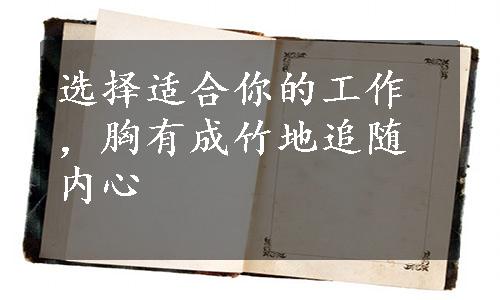 选择适合你的工作
，胸有成竹地追随
内心